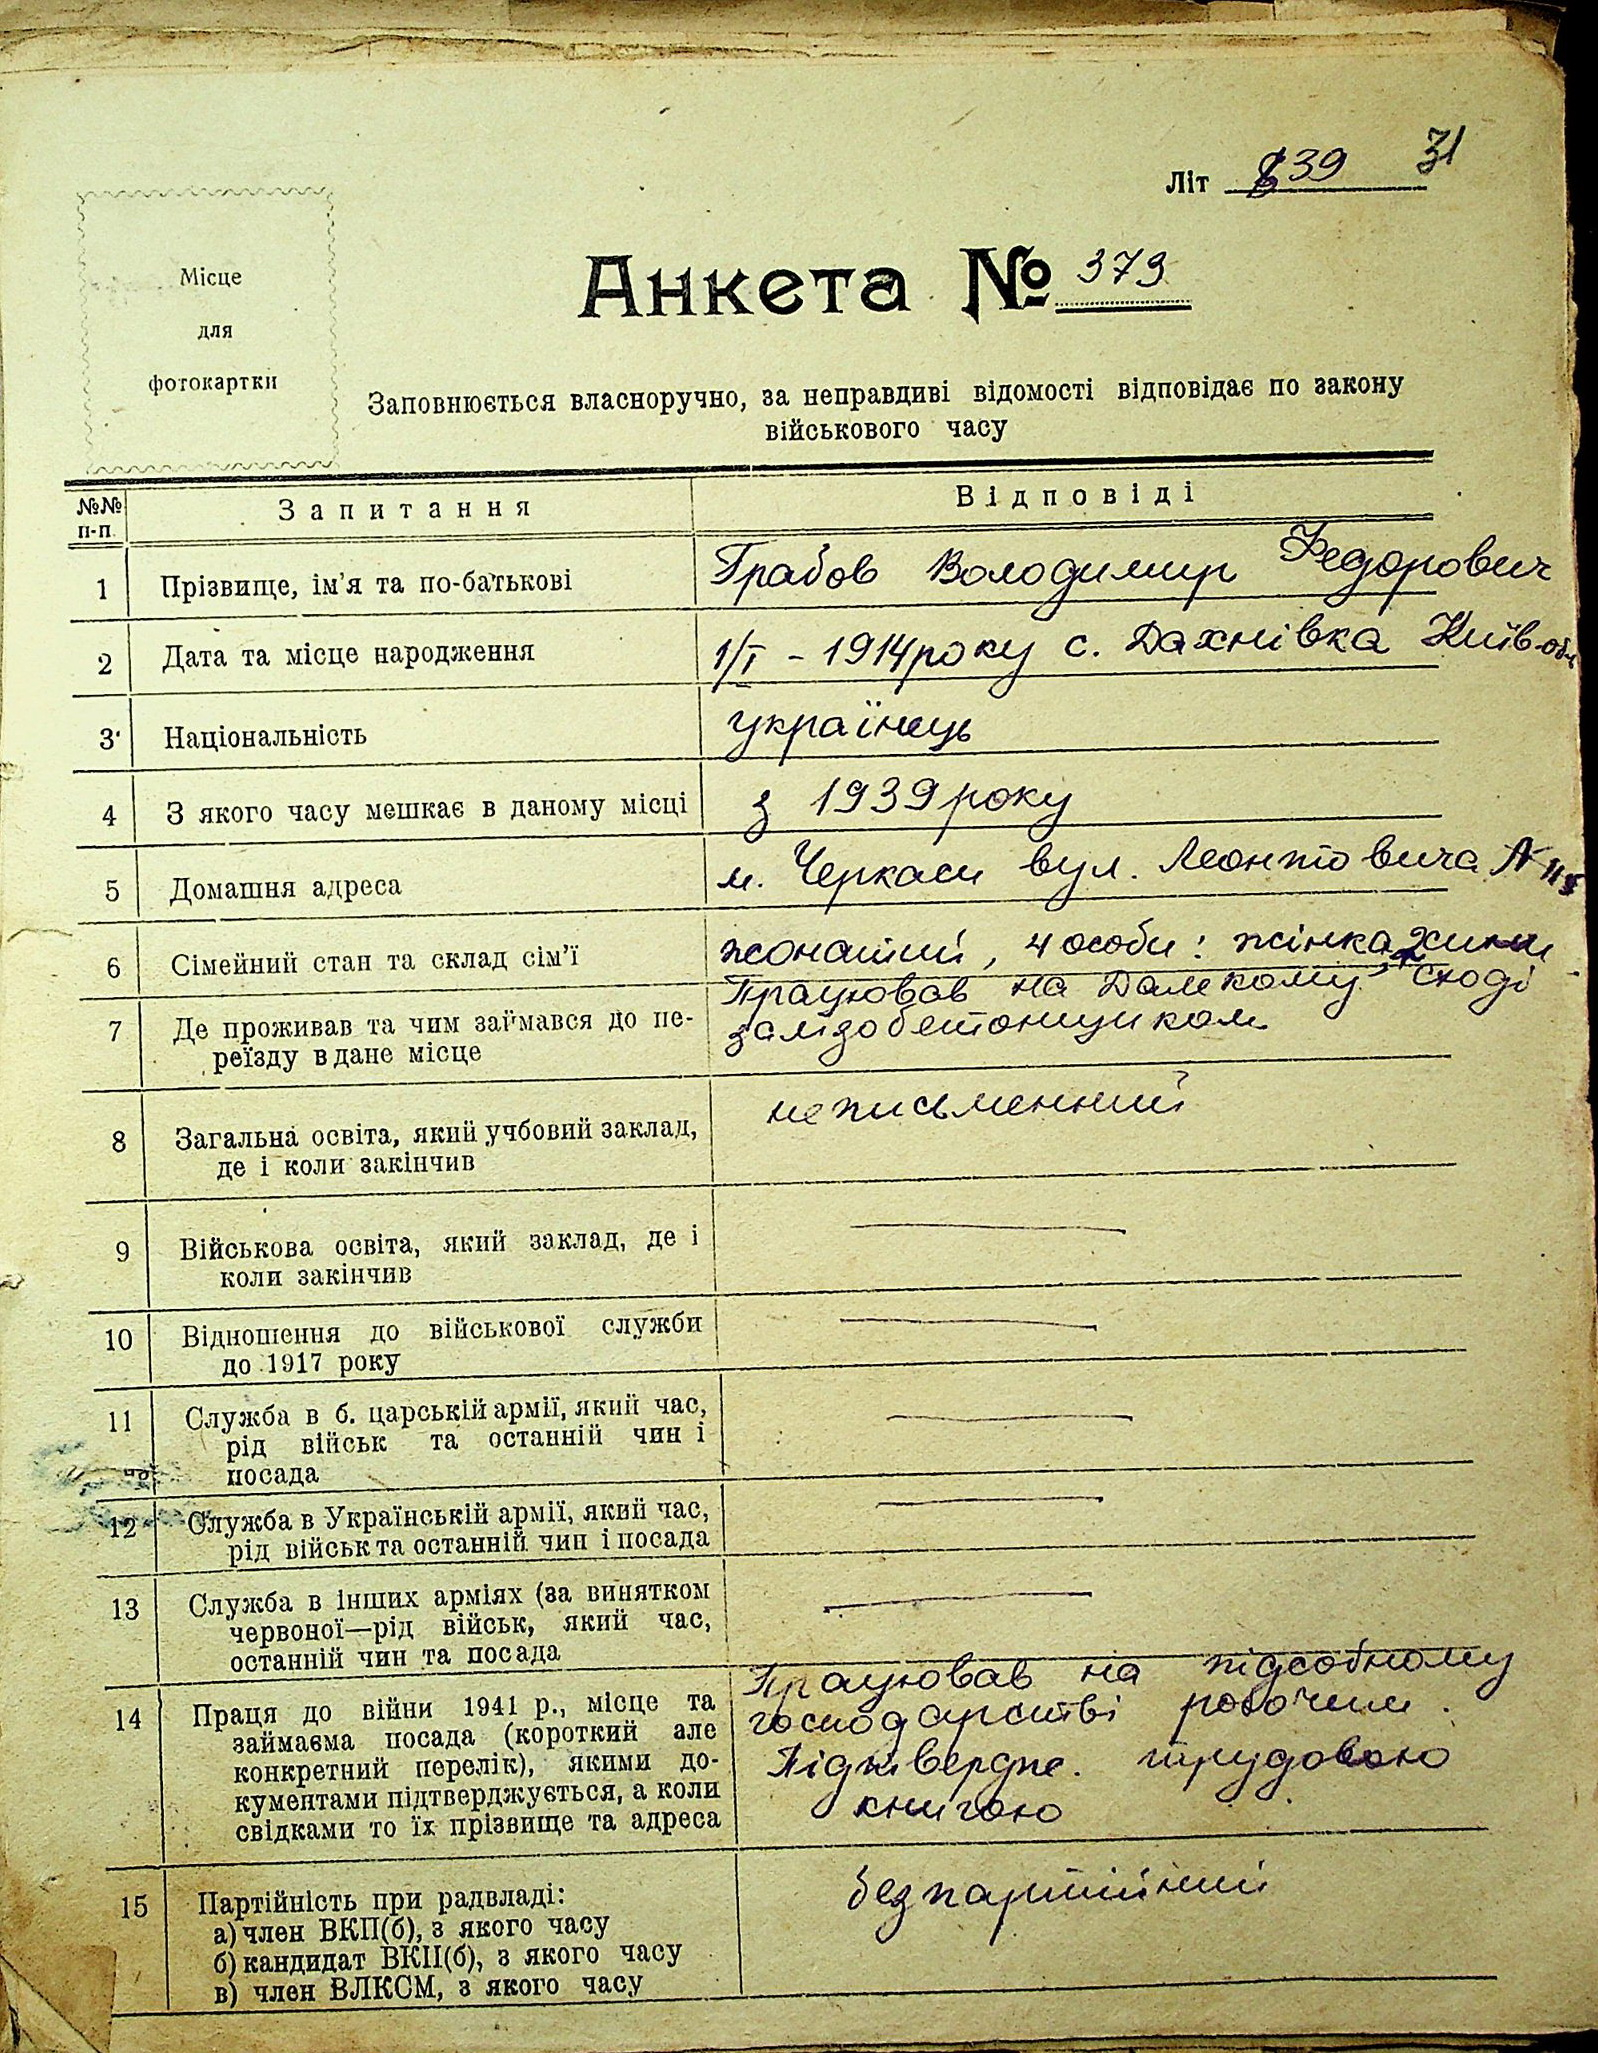 31
Літ 639
Місце
для
фотокартки
Анкета № 373
Заповнюється власноручно, за неправдиві відомості відповідає по закону
військового часу
№№ п-п. Запитання Відповіді
1 Прізвище, ім'я та по-батькові Грабов Володимир Федорович
2 Дата та місце народження 1/I – 1914 року с. Дахнівка Київ. обл
3 Національність українець
4 З якого часу мешкає в даному місці з 1939 року
5 Домашня адреса м. Черкаси вул. Леонтовича №
6 Сімейний стан та склад сім'ї жонатий, 4 особи: жінка
7 Де проживав та чим займався до пе-
реїзду в дане місце
Працював на Далекому Сході
залізобетонщиком
8 Загальна освіта, який учбовий заклад,
де і коли закінчив
неписьменний
9 Військова освіта, який заклад, де і
коли закінчив
10 Відношення до військової служби
до 1917 року
11 Служба в б. царській армії, який час,
рід військ та останній чин і
посада
12 Служба в Українській армії, який час,
рід військ та останній чин і посада
13 Служба в інших арміях (за винятком
червоної—рід військ, який час,
останній чин та посада
14 Праця до війни 1941 р., місце та
займаєма посада (короткий але
конкретний перелік), якими до-
кументами підтверджується, а коли
свідками то їх прізвище та адреса
Працював на підсобному
господарстві робочим.
Підтвердже. трудовою
книгою
15 Партійність при радвладі:
а) член ВКП(б), з якого часу
б) кандидат ВКП(б), з якого часу
в) член ВЛКСМ, з якого часу
безпартійний